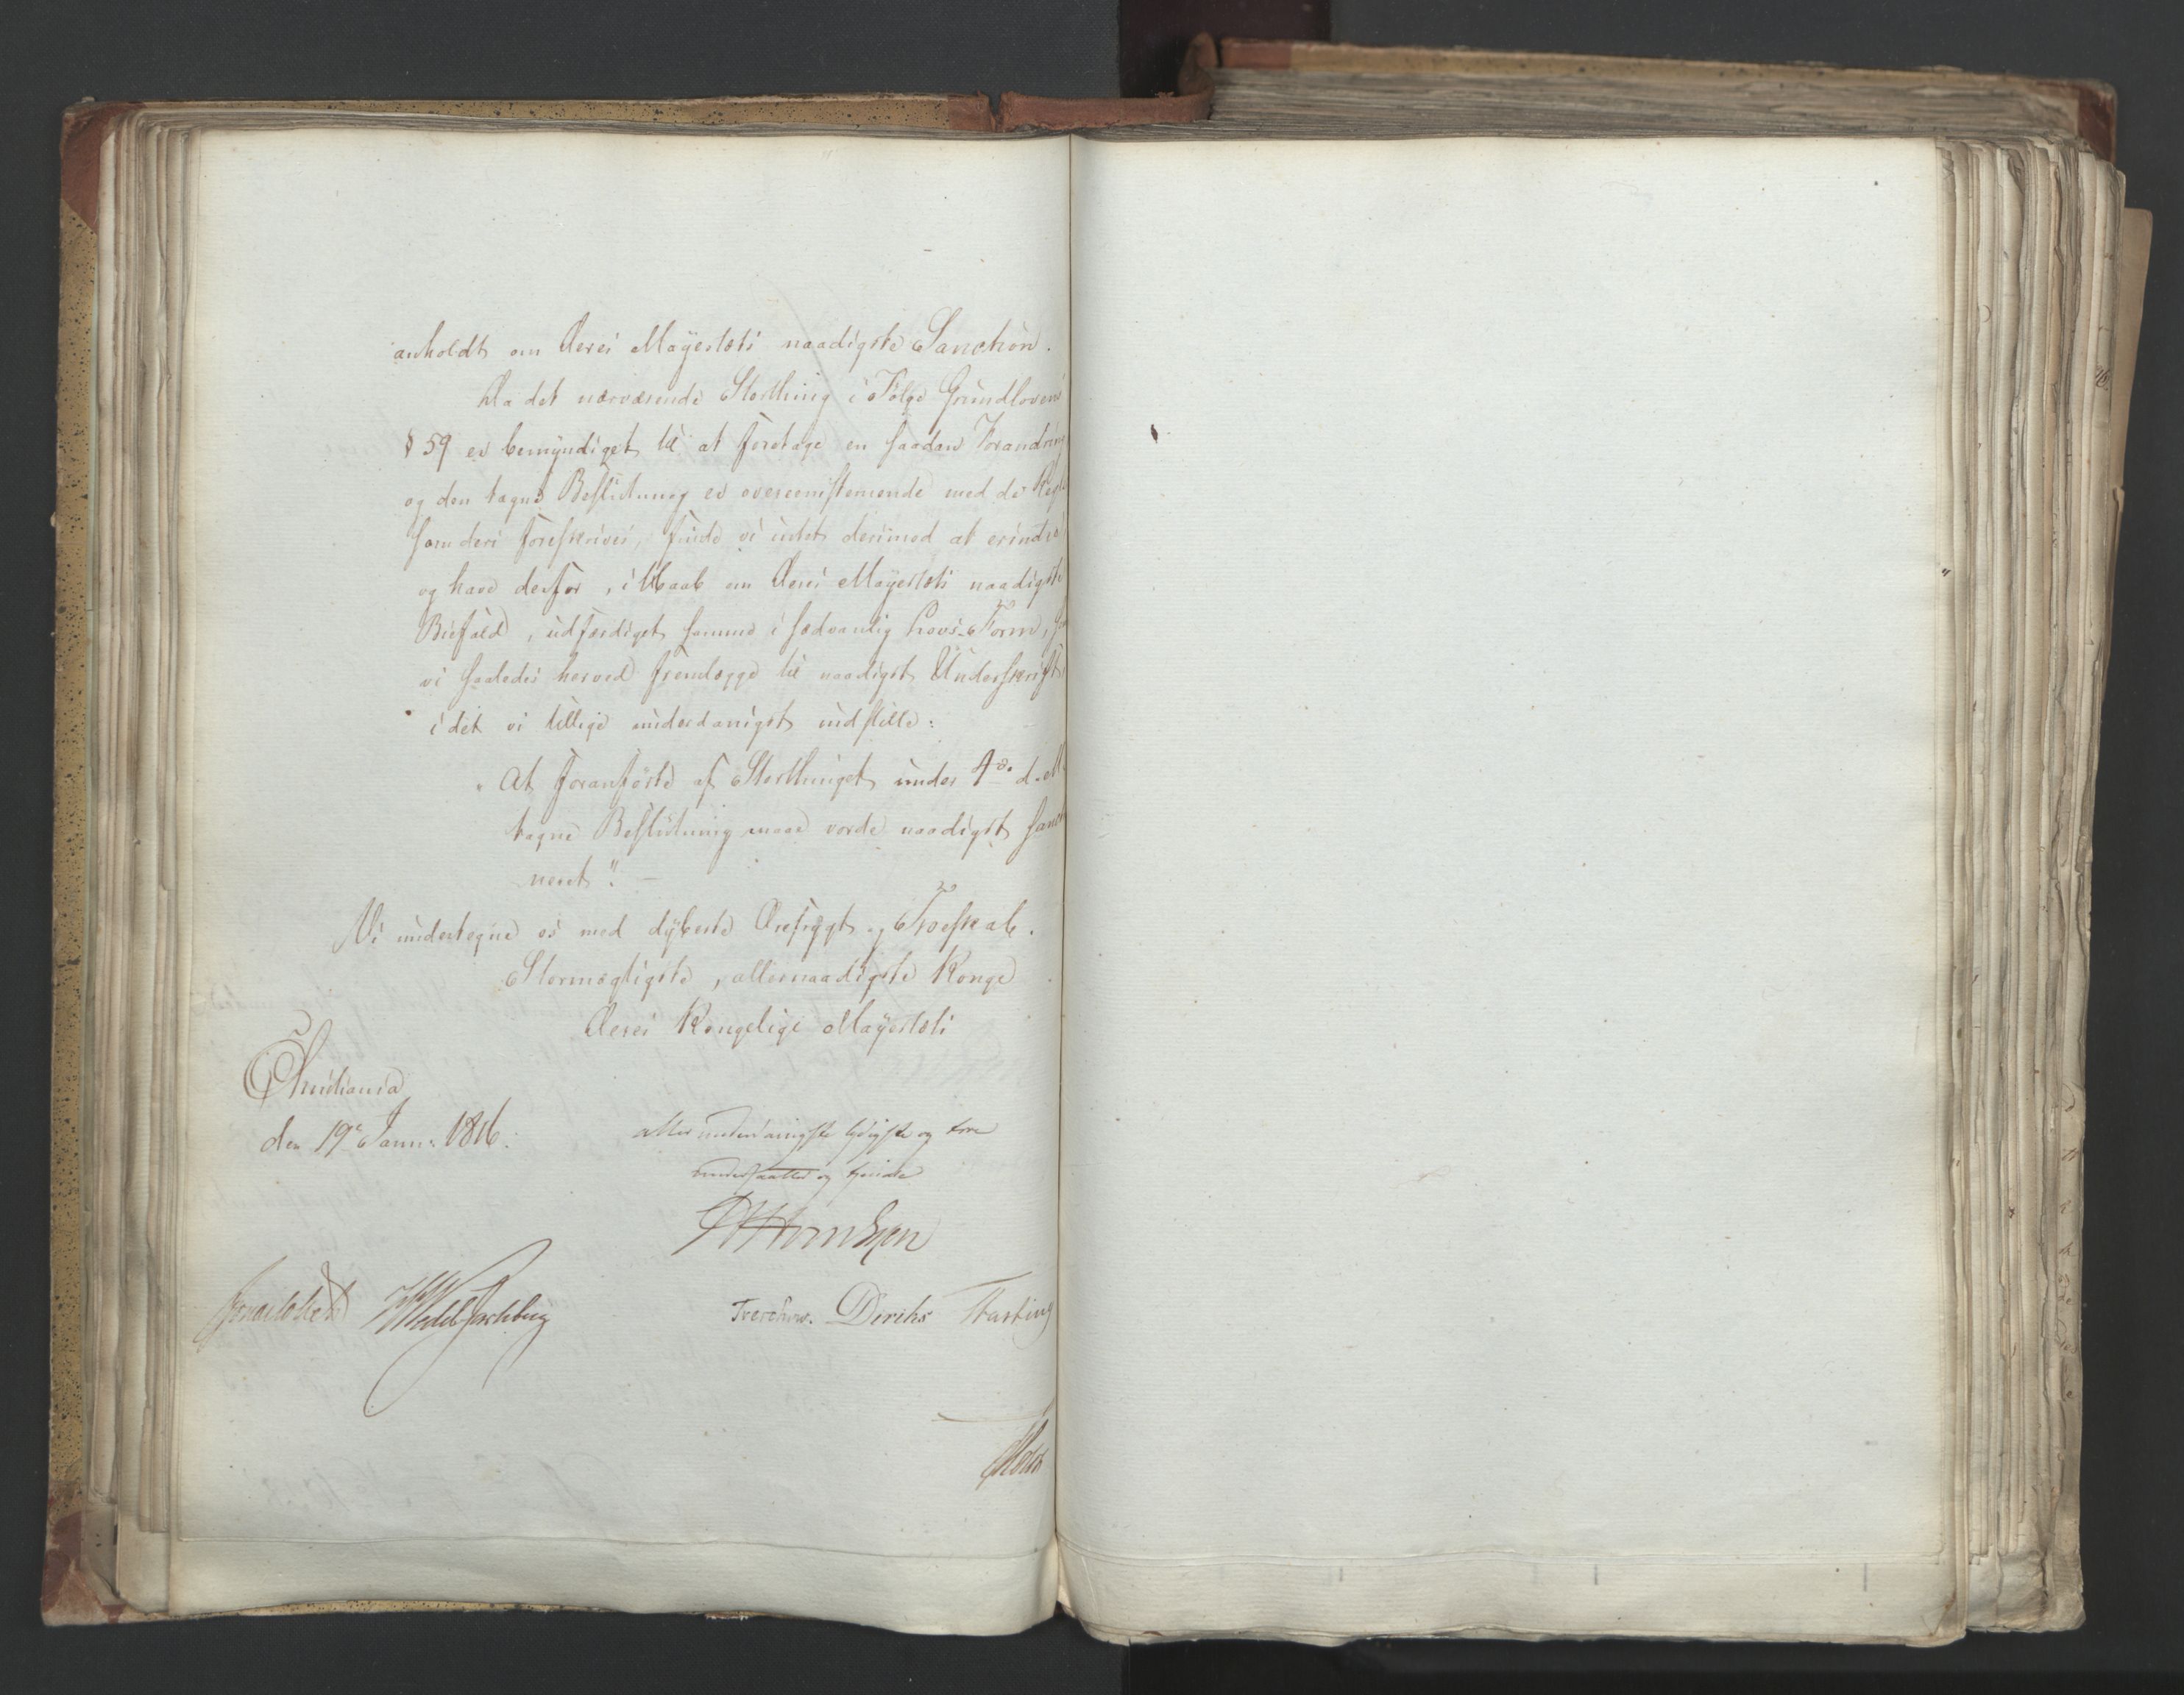 anholdt om Deres Mayestæts naadigste Sanction.
Da det nærværende Storthing i Følge Grundlovens
§ 59 er bemyndiget til at foretage en saadan Forandring
og den tagne Beslutning er overeensstemmende med de Regler
som deri foreskrives, finde vi intet derimod at erindre
og have derfor, i Haab om Deres Mayestæts naadigste
Bifald, udfærdiget samme i sædvanlig Lovs-Form, som
vi saaledes herved fremlægge til naadigst Underskrift
idet vi tillige underdanigst indstille:
"At foranførte af Storthinget under 4de d. M.
tagne Beslutning maae vorde naadigst sanctio
neret". –
Vi undertegne os med dybeste Ærefrygt og Troeskab.
Stormægtigste, allernaadigste Konge
Deres Kongelige Mayestæts
Christiania
den 19de Janr: 1816.
allerunderdanigste lydigste og troe
undersaatter og tjenere
Treschow. Diriks Hasting